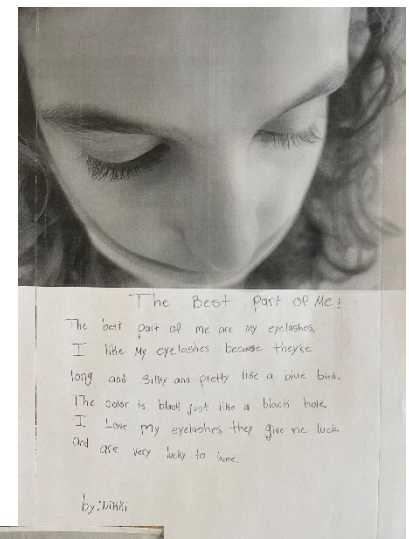 The Best Part Of Me!
The best part of me are my eyelashes.
I like My eyelashes because they're
long and silky and pretty like a blue bird.
The color is black just like a black hole.
I Love my eyelashes, they give me luck
and are very lucky to have.
by: Nikki